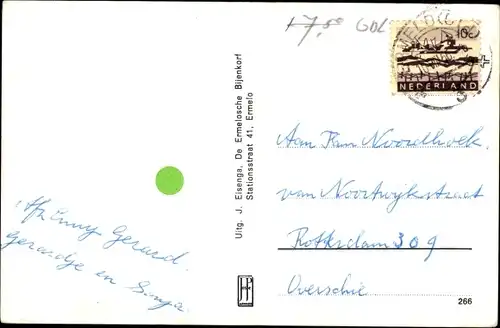 17,50 GDL
10c
NEDERLAND
Aan Fam Noordhoek
van Noortwijkstraat
Rotterdam 309
Overschie
Uitg. J. Eisenga, De Ermelosche Bijenkorf
Stationsstraat 41, Ermelo
Afz Enny Gerard
gerardje en
266